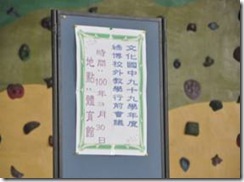 文化國中九十九學年度
綠博校外教學行前會議
時間：100年3月30日
地點：體育館